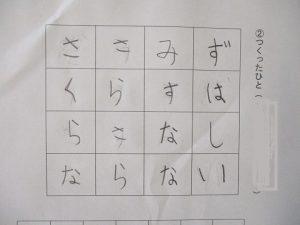 ②つくったひと（　）
ずばしい
みすなな
さらさら
さくらな